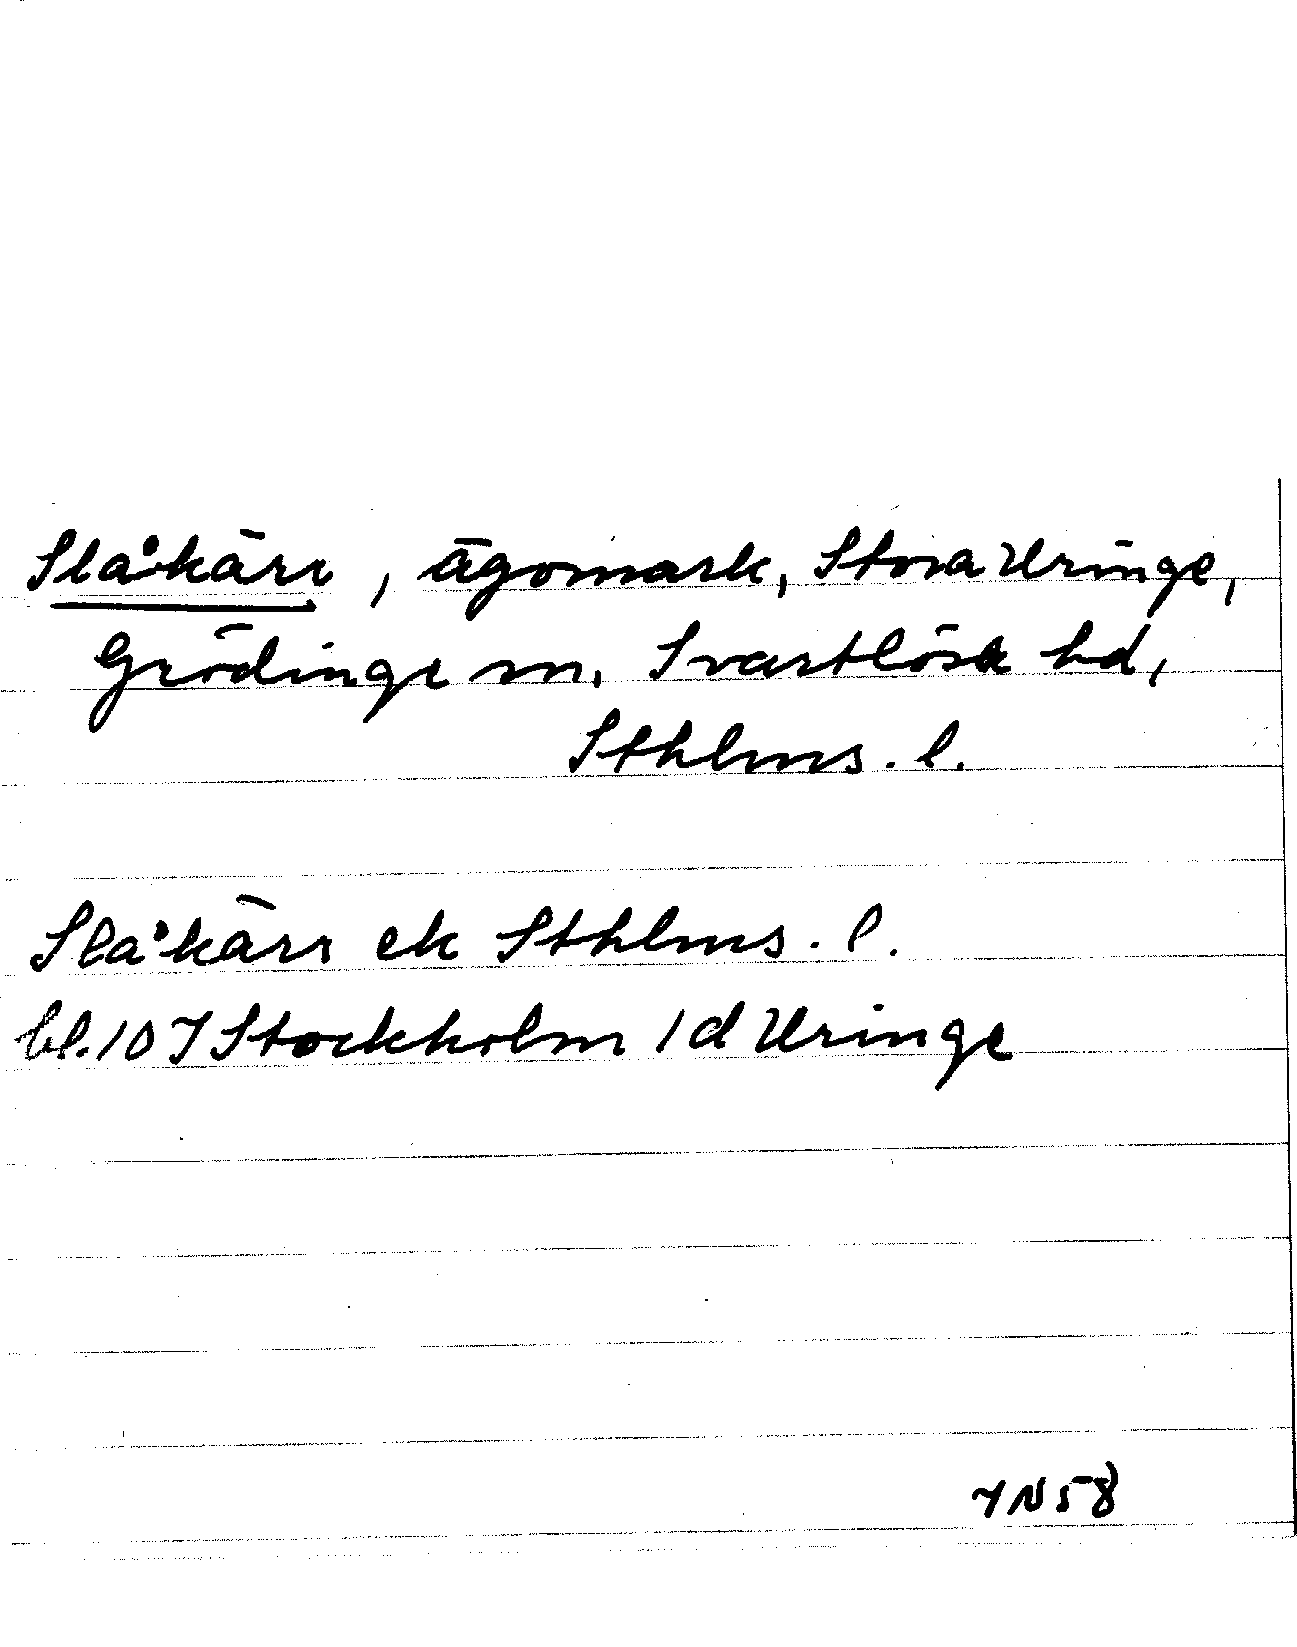 Slåkärr, ägomark, Stora Uringe,
Grödinge sn, Svartlösa hd,
Sthlms. l.
Slåkärr ek Sthlms. l.
bl. 10 I Stockholm 1d Uringe
IN58